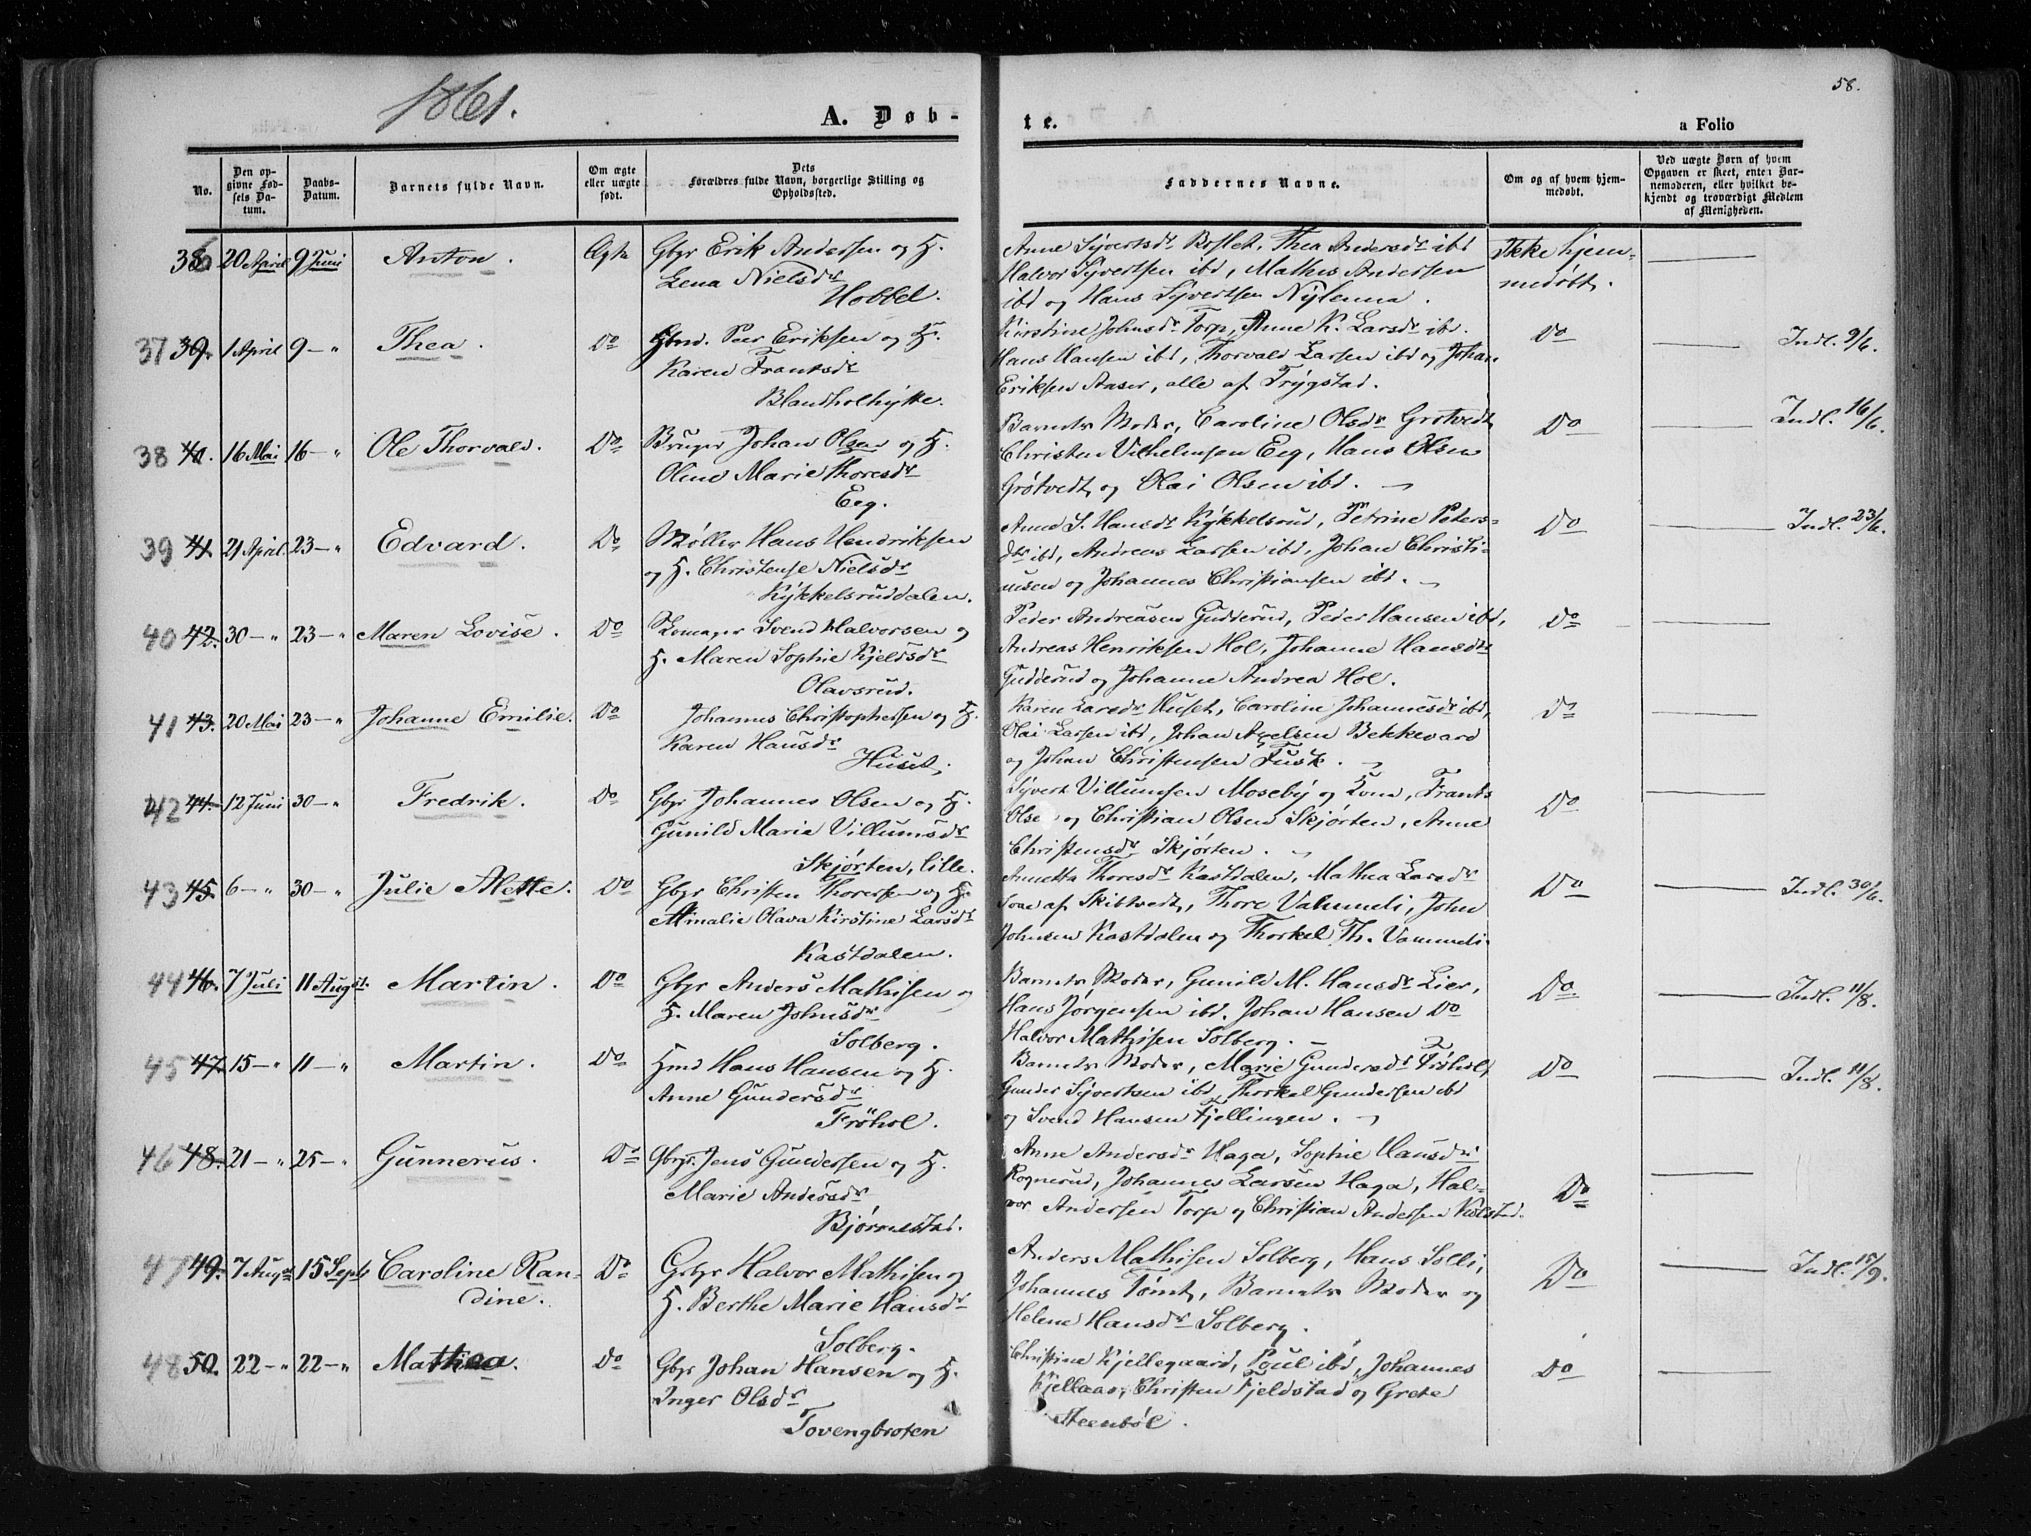 1861.
A. Døb-
te.
58.
a Folio
No.
Den op-
givne Fød-
sels Da-
tum.
Daabs-
Datum.
Barnets fulde Navn.
Om ægte
eller uægte
født.
Dets
Forældres fulde Navn, borgerlige Stilling og
Opholdssted.
Faddernes Navne.
Om og af hvem hjem-
medøbt.
Ved uægte Børn af hvem
Opgaven er skeet, enten Bar-
nemoderen, eller hvilket be-
kjendt og troværdigt Medlem
af Menigheden.
36 20 April 9 Juni Anton. Ægte
Gbgr Erik Andersen og H.
Lena Nielsdr
Hobbel.
Anne Syvertsdr Boslet, Thea Andersdr ibd
Halvor Syvertsen ibd, Mathis Andersen
ibd og Hans Syvertsen Nylenna.
Ikke hjem-
medøbt.
37 39. 1 April 9 — " Thea. Do
Hmd. Peer Eriksen og H.
Karen Frantsdr
Blandholhytte.
Kirstine Johnsdr Torp, Anne K. Larsdr ibd.
Hans Hansen ibd, Thorvald Larsen ibd og Johan
Eriksen Aaser, alle af Trygstad.
Do
Indl. 9/6.
38 40. 16 Mai 16 — " Ole Thorvald. Do
Bruger Johan Olsen og H.
Oline Marie Thoresdr
Eeg.
Barnets Moder, Caroline Olsdr Grøtvedt,
Christen Vilhelmsen Eeg, Hans Olsen
Grøtvedt og Olai Olsen ibd. —
Do
Indl. 16/6.
39 41. 21 April. 23 — " Edvard. Do
Møller Hans Hendriksen
og H. Christense Nielsdr
Kykkelsruddalen.
Anne S. Hansdr Kykkelsrud, Petrine Peters-
dtr ibd, Andreas Larsen ibd, Johan Christi-
ansen og Johannes Christiansen ibd. —
Do
Indl. 23/6.
40 42. 30 — " 23 — " Maren Lovise. Do
Skomager Svend Halvorsen og
H. Maren Sophie Kjeldsdr
Olavsrud.
Peder Andreasen Gudderud, Peder Hansen ibd,
Andreas Henriksen Hol, Johanne Hansdtr
Gudderud og Johanne Andrea Hol.
Do
41 43. 20 Mai 23 — " Johanne Emilie. Do
Johannes Christophersen og H.
Karen Hansdr
Huset,
Karen Larsdr Huset, Caroline Johannesdr ibd,
Olai Larsen ibd, Johan Axelsen Bekkevard
og Johan Christensen Fusk. —
Do
42 44. 12 Juni 30 — " Fredrik. Do
Gbgr Johannes Olsen og H.
Gunild Marie Villumsdr
Skjørten, lille.
Syvert Villumsen Moseby og Kone, Frants
Olsen og Christian Olsen Skjørten, Anne
Christensdr Skjørten. —
Do
43 45. 6 — " 30 — " Julie Alette. Do
Gbgr Christen Thoresen og H.
Minalie Olava Kirstine Larsdr
Kastdalen.
Annetta Thoresdr Kastdalen, Mathea Larsdr
Soae af Skibtvedt, Thore Vammeli, John
Johnsen Kastdalen og Thorkel Th. Vammeli.
Do
Indl. 30/6.
44 46. 7 Juli 11 August. Martin. Do
Gbgr Anders Mathisen og
H. Maren Johnsdr
Solberg.
Barnets Moder, Gunild M. Hansdr Lier,
Hans Jørgensen ibd. Johan Hansen Do
Halvor Mathisen Solberg. —
Do
Indl. 11/8.
45 47. 15 — " 11 — " Martin. Do
Hmd Hans Hansen og H.
Anne Gundersdr
Frøhol.
Barnets Moder, Marie Gundersdr Frøhol,
Gunder Syvertsen ibd Thorkel Gundersen ibd
og Svend Hansen Fjellingen. —
Do
Indl. 11/8.
46 48. 21 — " 25 — " Gunnerus. Do
Gbgr. Jens Gundersen og H.
Marie Andersdr
Bjørnestad.
Anne Andersdr Haga, Sophie Hansdr
Rognerud, Johannes Larsen Haga, Hal-
vor Andersen Torp og Christian Andersen Kolstad.
Do
47 49. 7 August 15 Septr Caroline Ran-
dine. Do
Gbgr Halvor Mathisen og
H. Berthe Marie Hansdr
Solberg.
Anders Mathisen Solberg, Hans Solli,
Johannes Tømt, Barnets Moder og
Helene Hansdr Solberg.
Do
Indl. 15/9.
48 50. 22 — " 22 — " Mathea. Do
Gbgr Johan Hansen og H.
Inger Olsdr
Tovengbroten
Christine Kjellegaard, Poul ibd, Johannes
Kjellaas, Christen Fjeldstad og Grete
Steenbøl.
Do